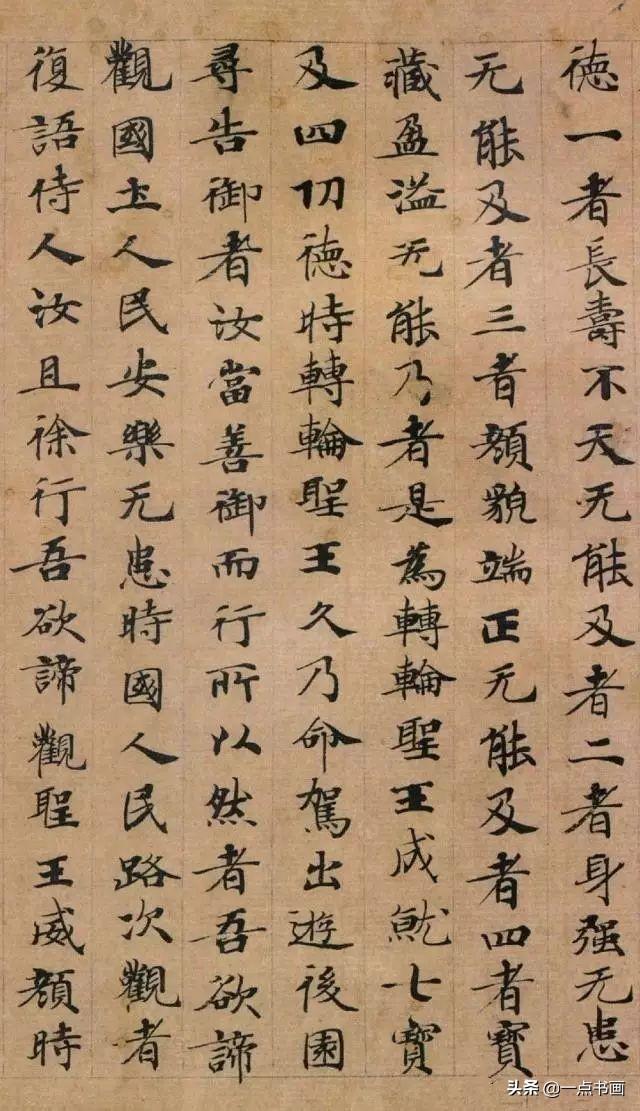 徳一者長壽不夭无能及者二者身强无患
无能及者三者顏貌端正无能及者四者寶
藏盈溢无能乃者是為轉輪聖王成就七寶
及四功徳時轉輪聖王久乃命駕出遊後園
尋告御者汝當善御而行所以然者吾欲諦
觀國土人民安樂无患時國人民路次觀者
復語侍人汝且徐行吾欲諦觀聖王威顏時
头条 @一点书画